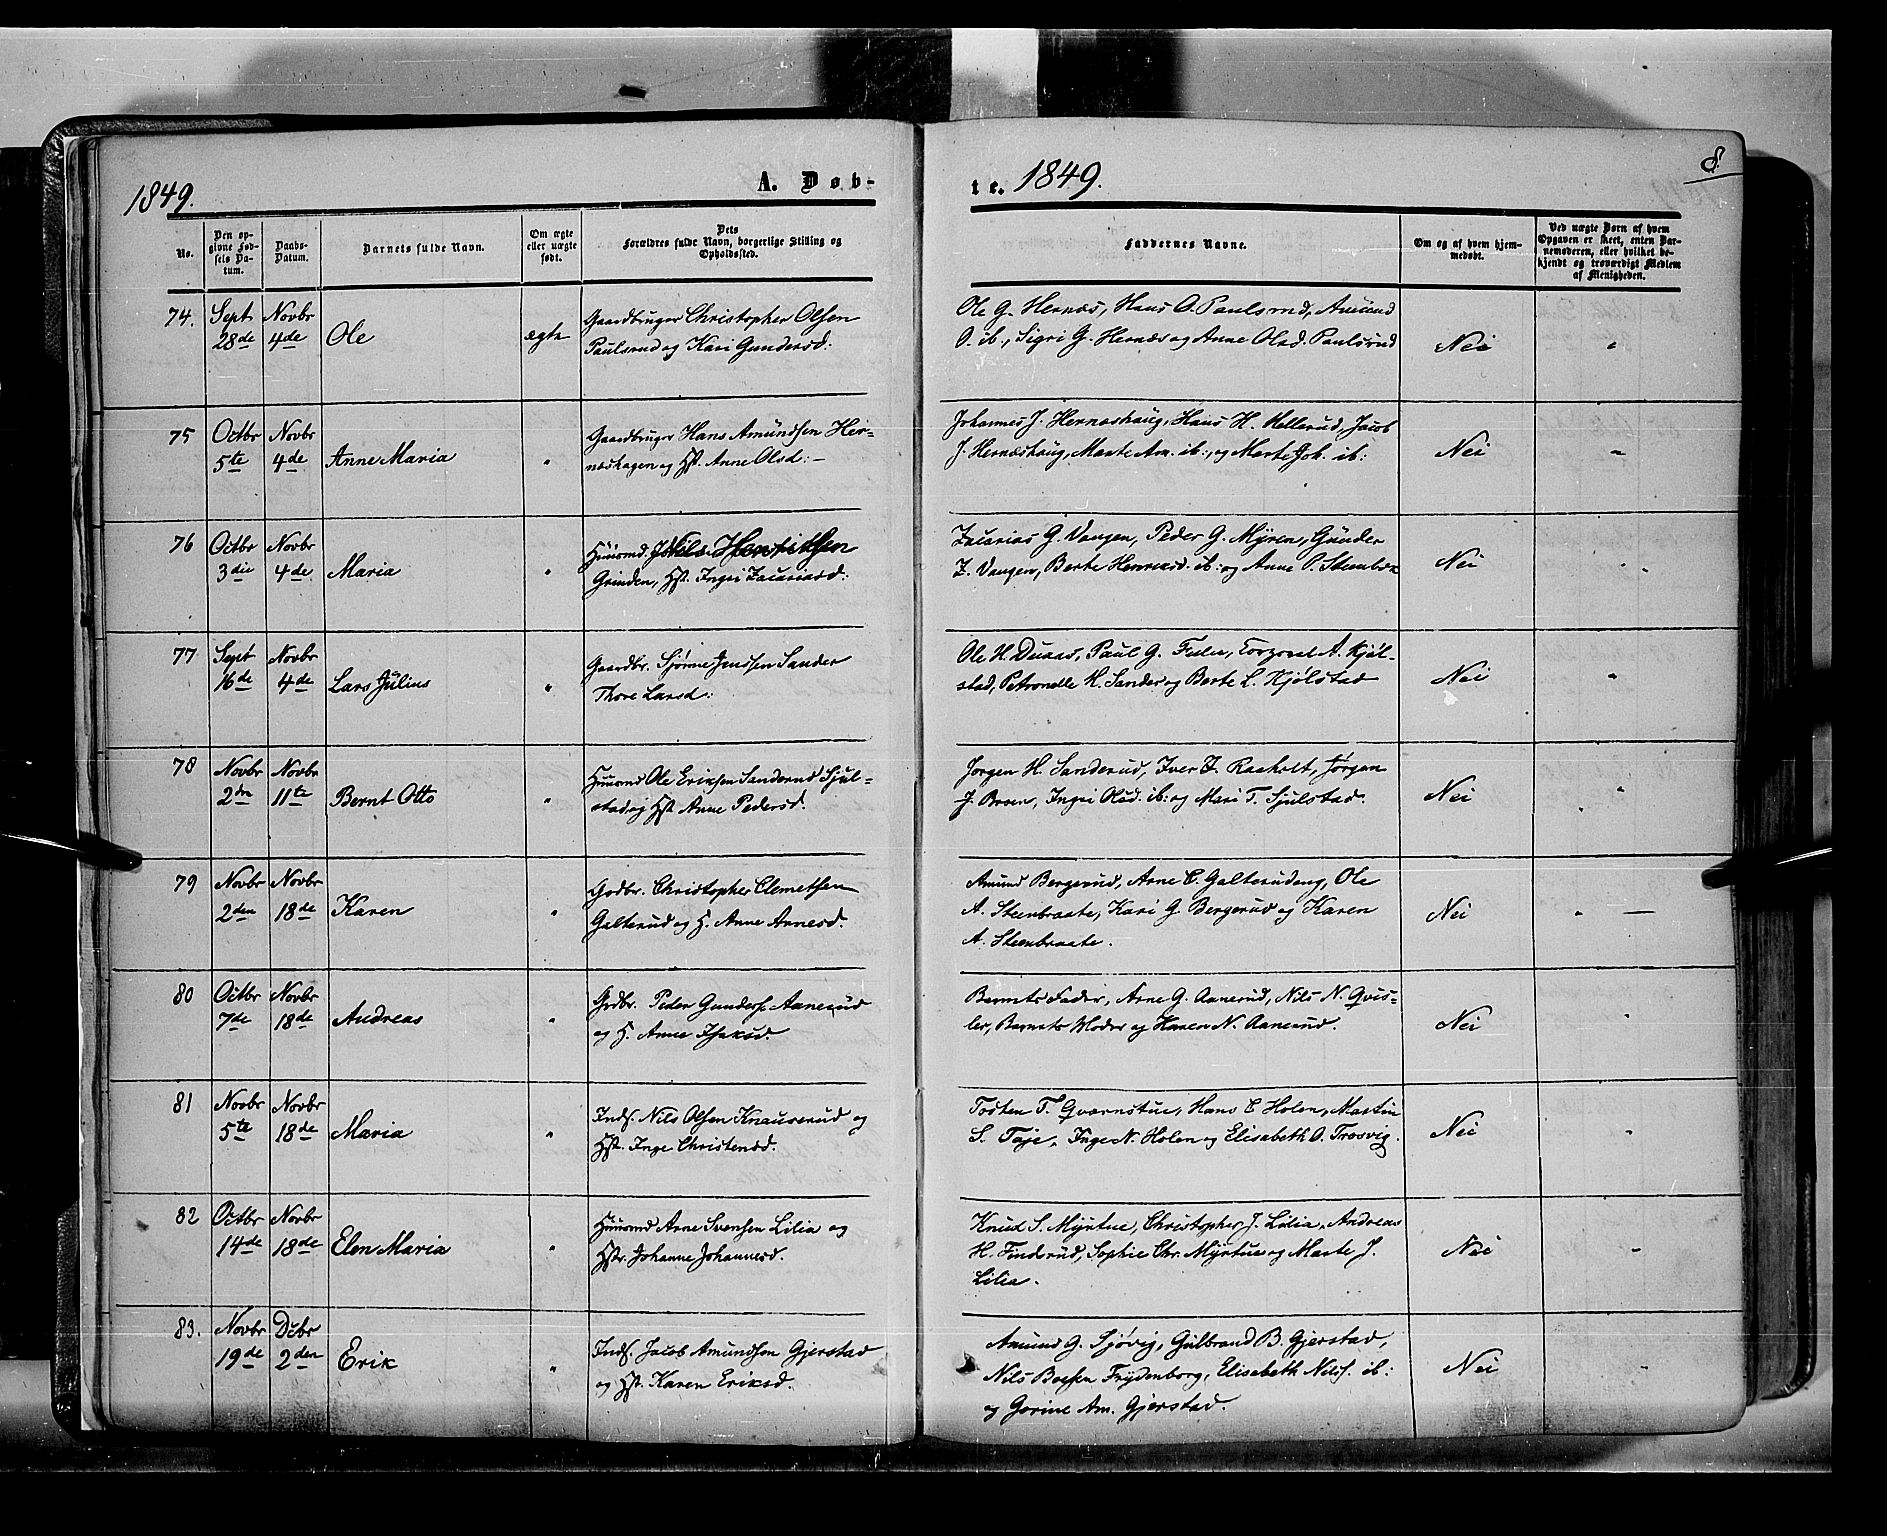 1849.
A. Døb-
te. 1849.
8.
No.
Den op-
givne Fød-
sels Da-
tum.
Daabs-
Datum.
Barnets fulde Navn.
Om ægte
eller uægte
født.
Dets
Forældres fulde Navn, borgerlige Stilling og
Opholdssted.
Faddernes Navne.
Om og af hvem hjem-
medøbt.
Ved uægte Børn af hvem
Opgaven er skeet, enten Bar-
nemoderen, eller hvilket be-
kjendt og troværdigt Medlem
af Menigheden.
74.
Sept
28de
Novbr
4de
Ole
ægte
Gaardbruger Christopher Olsen
Paulsrud og Kari Gundersd:
Ole G. Hernæs, Hans O. Paulsrud, Amund
O. ib., Sigri G. Hernæs og Anne Olsd. Paulsrud
Nei
"
75
Octbr
5te
Novbr
4de
Anne Maria
"
Gaardbruger Hans Amundsen Her-
næshagen og Hst. Anne Olsd:
Johannes J. Hernæshaug, Hans H. Hellerud, Jacob
J. Hernæshaug, Marte Am. ib:, og Marte Joh. ib:
Nei
"
76
Octbr
3die
Novbr
4de
Maria
"
Huusmd. Henriksen
Grinden, Hst. Ingri Zacariasd:
Zacarias G. Vangen, Peder G. Myren, Gunder
Z. Vangen, Berte Henriksd. ib: og Anne P.
Nei
"
77
Sept
16de
Novbr
4de
Lars Julius
"
Gaardbr. Sjønne Jenssen Sander
Thore Larsd:
Ole H. Duaas, Paul G. A. Kjøl-
stad, Petronelle H. Sander og Berte L. Kjølstad
Nei
"
78
Novbr
2den
Novbr
11te
Bernt Otto
"
Huusmd Ole Eriksen Sanderud Sjul-
stad og Hst Anne Pedersd.
Jørgen H. Sanderud, Iver Raaholt, Jørgen
J. Bruun, Ingri Olsd. ib: og Mari T. Sjulstad.
Nei
"
79
Novbr
2den
Novbr
18de
Karen
"
Godbr. Christopher Clemetsen
Galterud og H. Anne Arnesd.
Amund Bergerud, Arne C. Galterudeng, Ole
A. Steenbraate, Kari G. Bergerud og Karen
A. Steenbraate.
Nei
" —
80
Octbr
7de
Novbr
18de
Andreas
"
Grdbr. Peder Gunders. Aanerud
og H. Anne Isaksd.
Barnets Fader, Arne G. Aanerud, Nils N. Qvis-
ler, Barnets Moder og Karen N. Aanerud.
Nei
"
81
Novbr
5te
Novbr
18de
Maria
"
Inds. Nils Olsen Knauserud og
Hst. Inge Christensd.
Tosten T. Qværnstue, Hans C Holen, Martin
S. Taje, Inge N. Holen og Elisabeth O. Trosvig.
Nei
"
82
Octbr
14de
Novbr
18de
Elen Maria
"
Huusmd Arne Svensen Lilia og
Hstr. Johanne Johannesd.
Knud S. Myrtue, Christopher J. Lilia, Andreas
H. Finderud, Sophie Chr. Myrtue og Marte J.
Lilia.
Nei
"
83.
Novbr
19de
Dcbr
2den
Erik
"
Inds. Jacob Amundsen Gjerstad
og Hst. Karen Eriksd.
Amund G. Sjøvig, Gulbrand B. Gjerstad,
Nils Boesen Frydenborg, Elisabeth Nilss. ib:
og Gorine Am. Gjerstad.
Nei
"